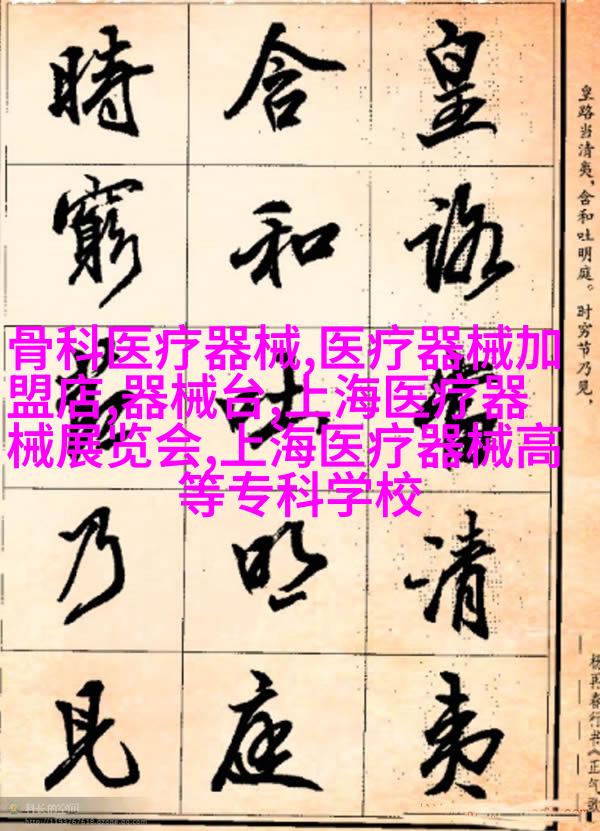 皇路当清夷，含和吐明庭。时穷节乃见，
杨再春行书《正气歌
皇路當清夷
含和吐明庭
時窮節乃見
骨科医疗器械,医疗器械加
盟店,器械台,上海医疗器
械展览会,上海医疗器械高
等专科学校
科长的空间